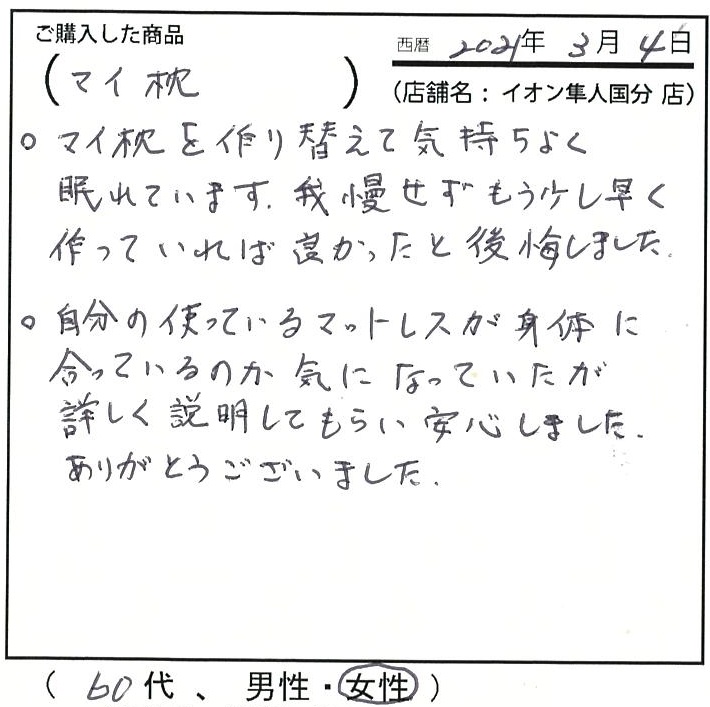 ご購入した商品
西暦 2021年 3月 4日
(マイ枕)
(店舗名：イオン隼人国分 店)
○ マイ枕を作り替えて気持ちよく
眠れています. 我慢せずもう少し早く
作っていれば良かったと後悔しました.
○ 自分の使っているマットレスが身体に
合っているのか気になっていたが
詳しく説明してもらい安心しました.
ありがとうございました.
( 60代 、 男性・女性 )